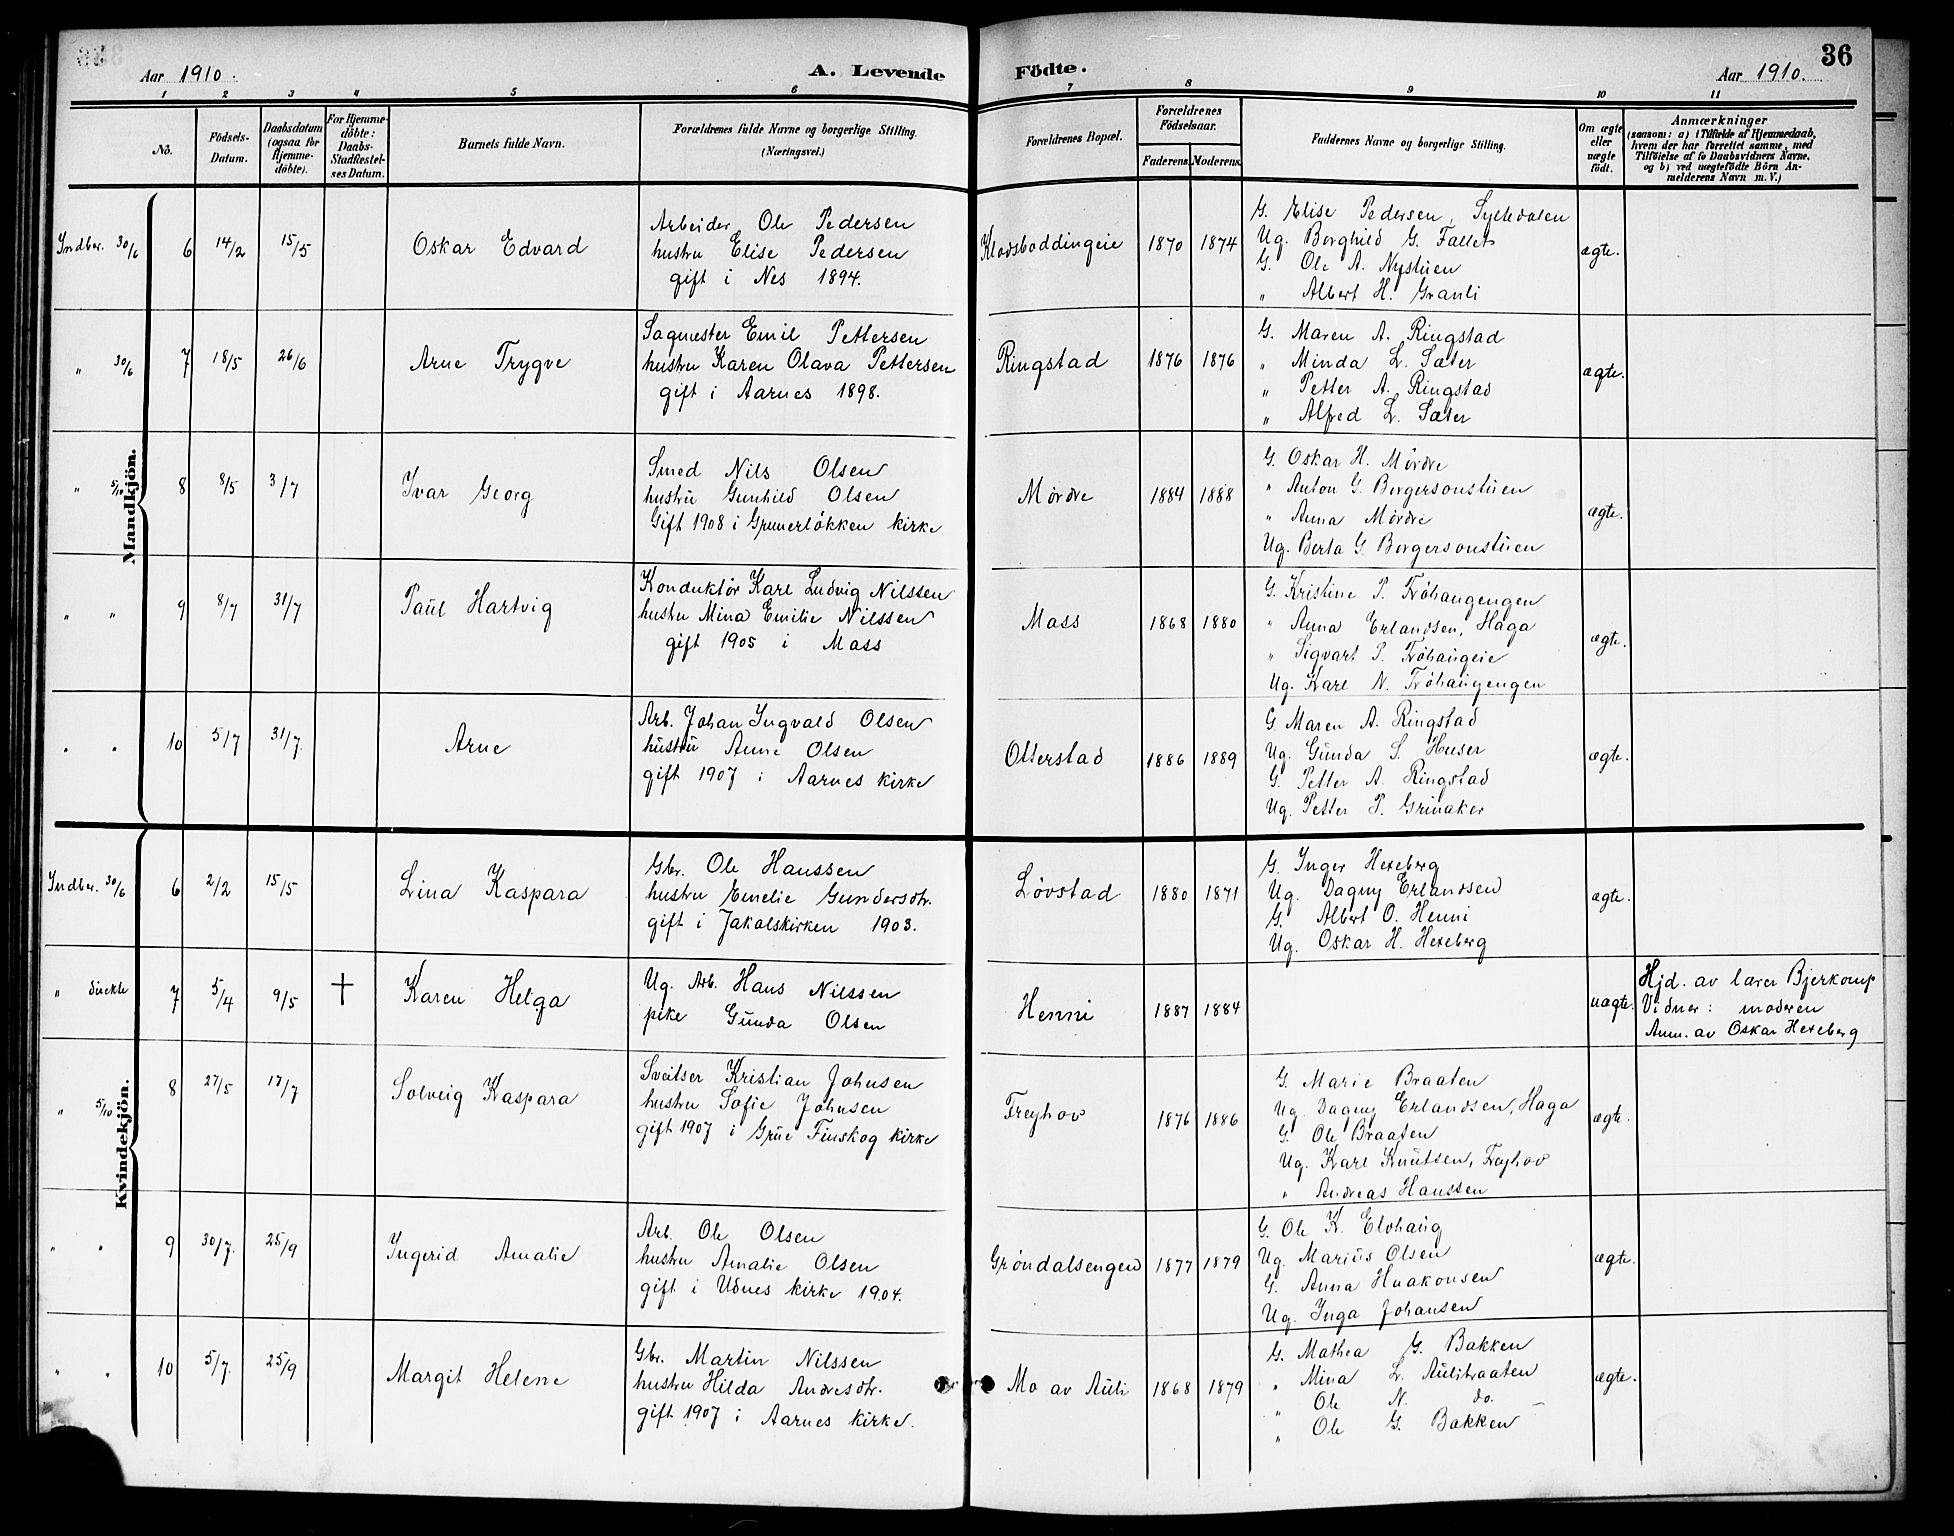 Aar 1910.
A. Levende Födte.
36
Aar 1910.
1 2 3 4 5 6 7 8 9 10 11
No.
Födsels-Datum.
Daabsdatum (ogsaa for Hjemme-døbte).
For Hjemme-döbte: Daabs-Stadfæstel-ses Datum.
Barnets fulde Navn.
Forældrenes fulde Navne og borgerlige Stilling.
(Næringsvei.)
Forældrenes Bopæl.
Forældrenes Födselsaar.
Faderens. Moderens.
Faddernes Navne og borgerlige Stilling.
Om ægte eller uægte født.
Anmærkninger
(saasom: a) i Tilfælde af Hjemmedaab,
hvem der har forrettet samme, med
Tilföielse af to Daabsvidners Navne,
og b) ved uægtefödte Börn An-
melderens Navn m. V.)
Mandkjön.
Indber. 30/6 6 14/2 15/5 Oskar Edvard
Arbeider Ole Pedersen
hustru Elise Pedersen
gift i Nes 1894.
Klodsboddingeie 1870 1874
G. Elise Pedersen, Syltedalen
Ug. Borghild G. Fallet
G. Ole A. Nystuen
" Albert H. Granli
ægte.
" 30/6 7 18/5 26/6 Arne Trygve
Sagmester Emil Pettersen
hustru Karen Olava Pettersen
gift i Aarnes 1898.
Ringstad 1876 1876
G. Maren A. Ringstad
" Minda L. Sæter
" Petter A. Ringstad
" Alfred L. Sæter
ægte.
" 5/10 8 8/5 3/7 Ivar Georg
Smed Nils Olsen
hustru Gunhild Olsen
Gift 1908 i Grunerløkken kirke
Mørdre 1884 1888
G. Oskar H. Mørdre
" Anton G. Borgersonstuen
" Anna Mørdre
Ug. Berta G. Borgersonstuen
ægte.
" " 9 8/7 31/7 Paul Hartvig
Konduktør Karl Ludvig Nilssen
hustru Mina Emilie Nilssen
gift 1905 i Mass
Mass 1868 1880
G. Kristine P. Frøhaugengen
" Anna Erlandsen, Haga
" Sigvart P. Frøhaugeie
Ug. Karl N. Frøhaugengen
ægte.
" " 10 5/7 31/7. Arne
Arb. Johan Ingvald Olsen
hustru Anne Olsen
gift 1907 i Aarnes kirke
Otterstad 1886 1889
G. Maren A. Ringstad
Ug. Gunda S. Huser
G. Petter A. Ringstad
Ug. Petter P. Grinaker
ægte.
Kvindekjön.
Indber. 30/6 6 2/2 15/5 Lina Kaspara
Gbr. Ole Hanssen
hustru Emelie Gundersdtr.
gift i Jakobskirken 1903.
Løvstad 1880 1871
G. Inger Hexeberg
Ug. Dagny Erlandsen
G. Albert O. Henni
Ug. Oskar H. Hexeberg
ægte.
" direkte 7 5/4 9/5 † Karen Helga
Ug. Arb. Hans Nilssen
pike Gunda Olsen
Henni 1887 1884
uægte.
Hjd. av lærer Bjerkomp
Vidner: moderen
Anm. av Oskar Hexeberg
" 5/10 8 27/5 17/7 Solveig Kaspara
Sveitser Kristian Johnsen
hustru Sofie Johnsen
gift 1907 i Grue Finskog kirke
Freyhov 1876 1886
G. Marie Braaten
Ug. Dagny Erlandsen, Haga
G. Ole Braaten
Ug. Karl Knutsen, Freyhov
" Andreas Hanssen
ægte.
" " 9 30/7. 25/9 Ingerid Amalie
Arb. Ole Olsen
hustru Amalie Olsen
gift i Udnes kirke 1904.
Grøndalsengen 1877 1879
G. Ole K. Elvhaug
Ug. Marius Olsen
G. Anna Haakonsen
Ug. Inga Johansen
ægte.
" " 10 5/7. 25/9 Margit Helene
Gbr. Martin Nilssen
hustru Hilda Andresdtr.
gift 1907 i Aarnes kirke.
Mo av Auli 1868 1879
G. Mathea G. Bakken
" Mina L. Aulibraaten
" Ole N. do.
" Ole G. Bakken
ægte.